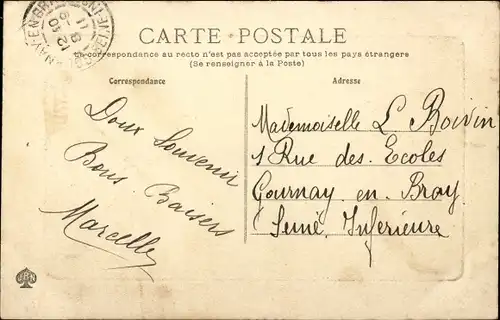 CARTE POSTALE
La correspondance au recto n'est pas acceptée par tous les pays étrangers
(Se renseigner à la Poste)
Correspondance
Adresse
Doux Souvenir
Bons Baisers
Marcelle
Mademoiselle L Boivin
1 Rue des Ecoles
Gournay en Bray
Seine Inferieure